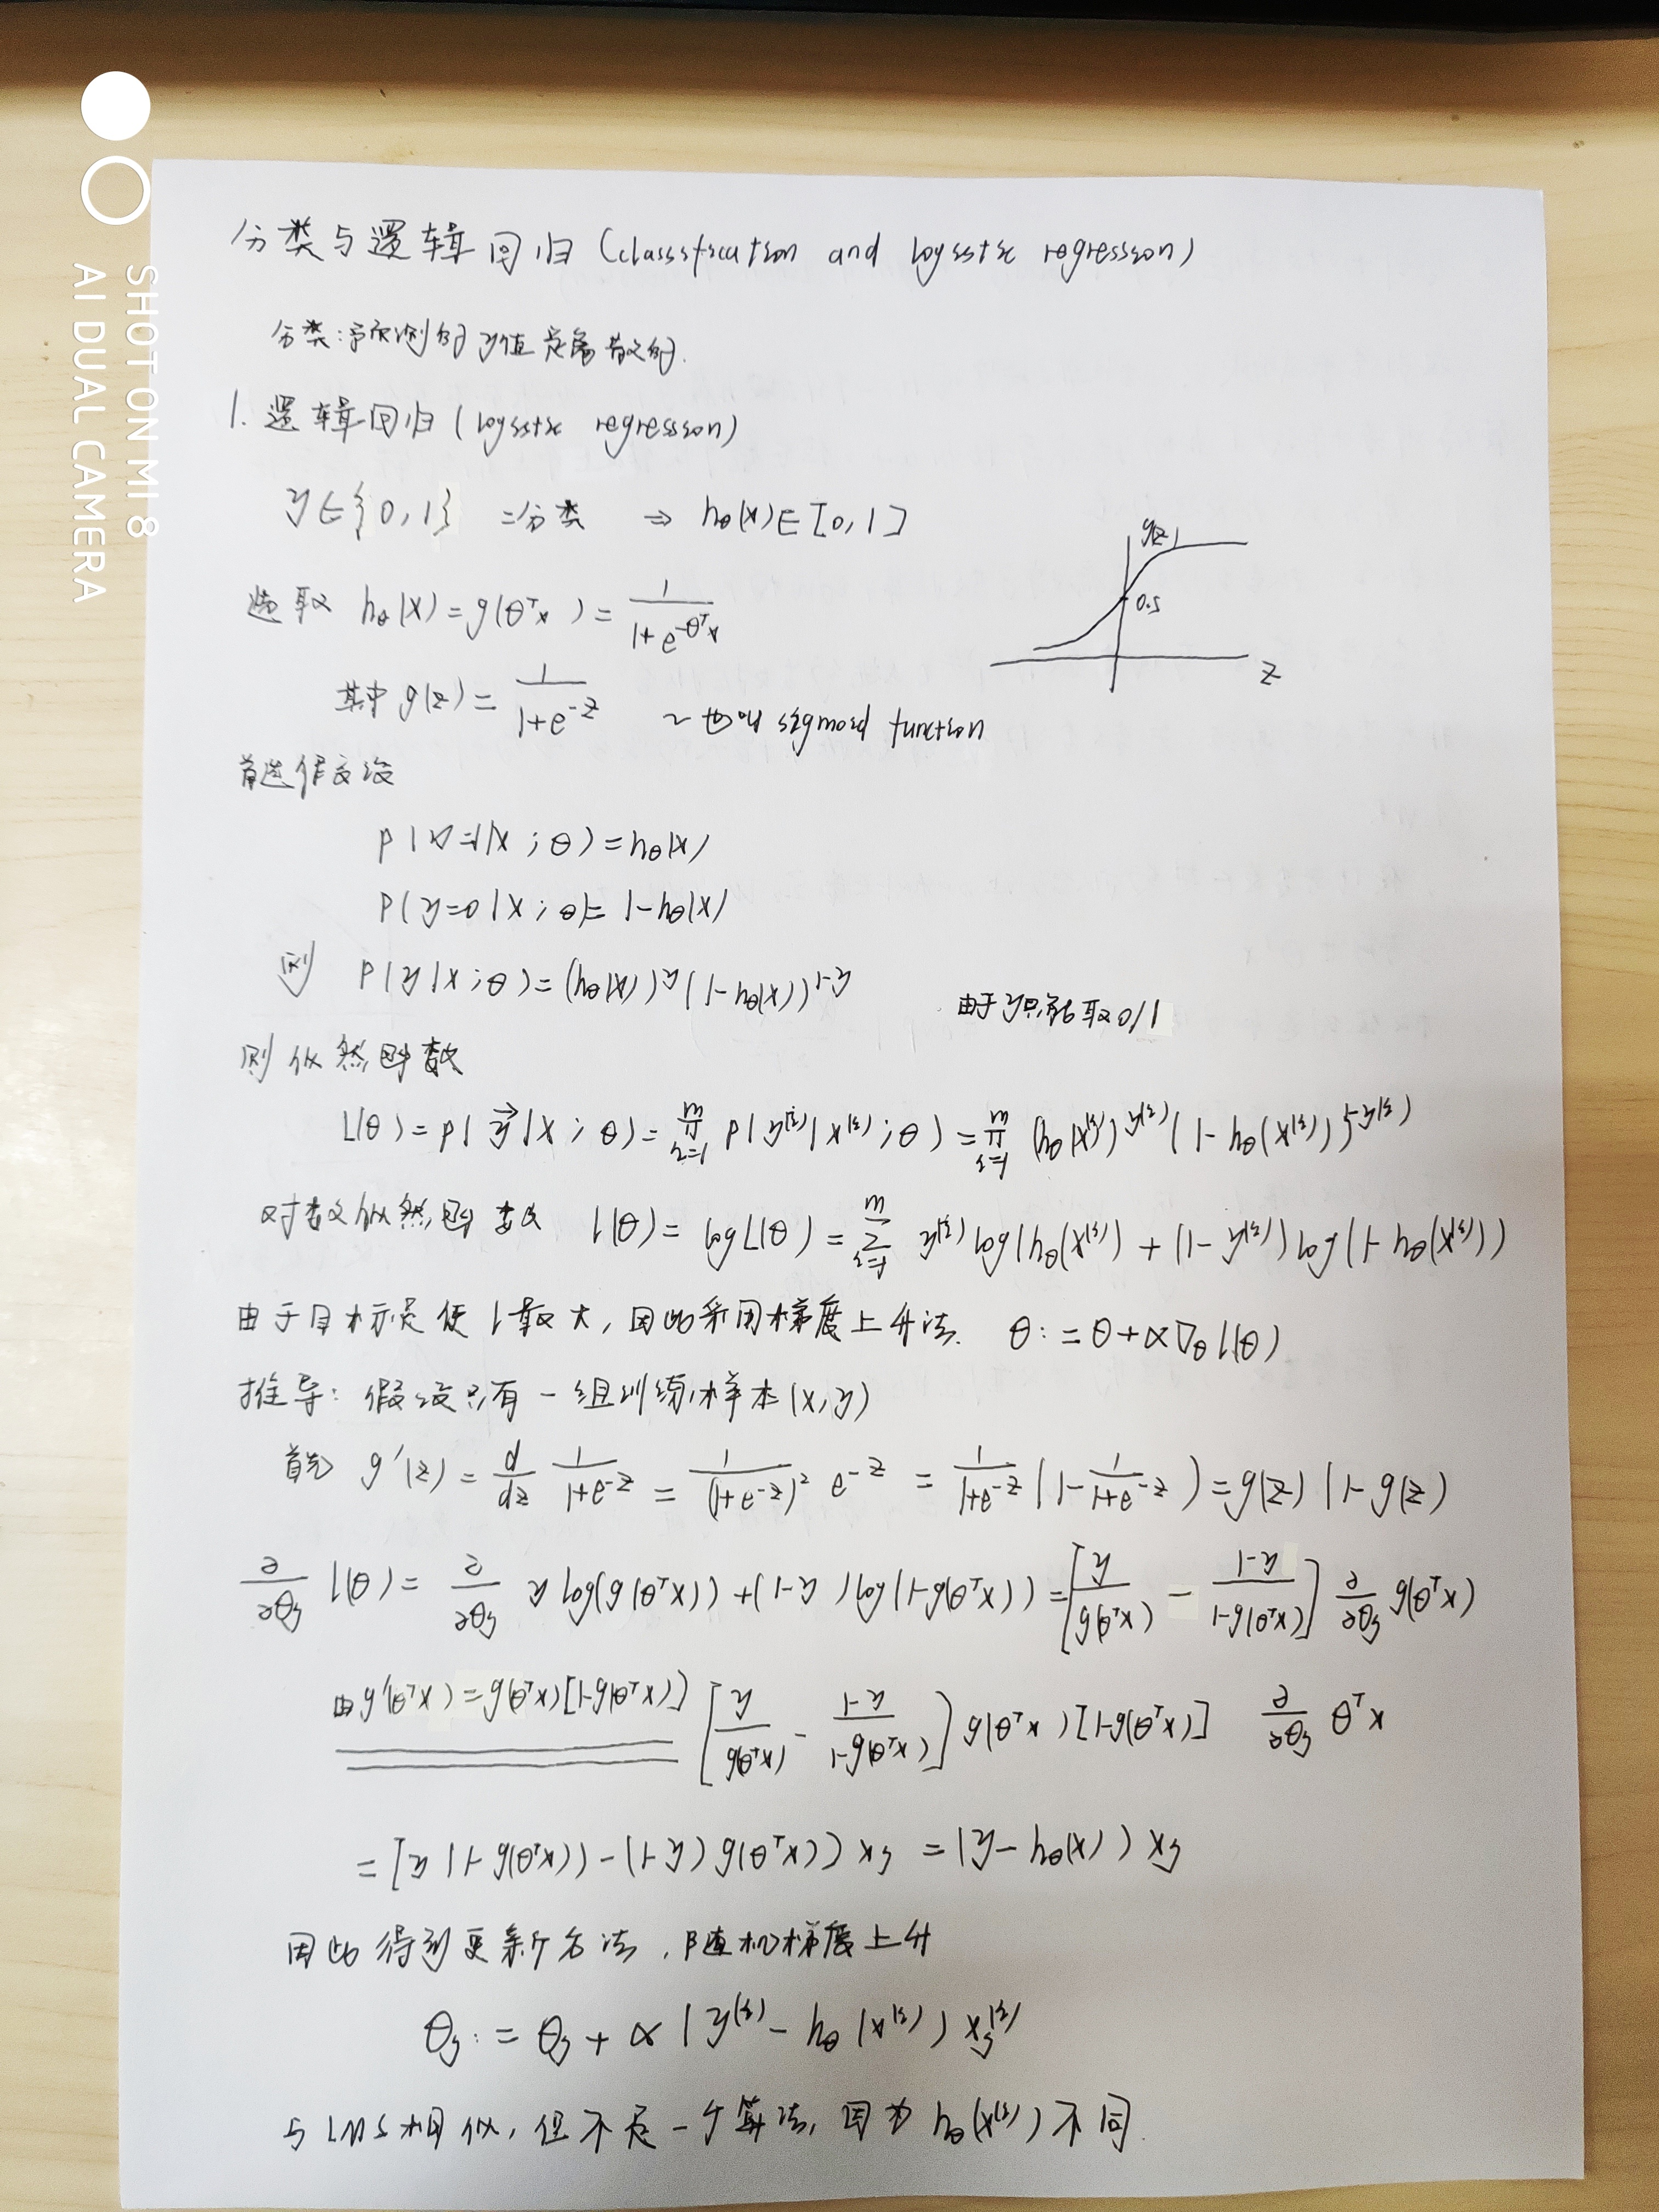 SHOT ON MI 8
AI DUAL CAMERA
分类与逻辑回归 (classification and logistic regression)
分类:预测的y值是离散的.
1. 逻辑回归 (logistic regression)
y∈{0,1} 二分类 ⇒ hθ(x)∈[0,1]
g(z)
0.5
z
选取 hθ(x)=g(θᵀx)=1/(1+e^(-θᵀx))
其中 g(z)=1/(1+e^(-z)) ~ 也叫 sigmoid function
首先假设
P(y=1|x;θ)=hθ(x)
P(y=0|x;θ)=1-hθ(x)
则 P(y|x;θ)=(hθ(x))^y(1-hθ(x))^(1-y) 由于y只能取0/1
则似然函数
L(θ)=p(y⃗|X;θ)=∏_(i=1)^m p(y^(i)|x^(i);θ)=∏_(i=1)^m (hθ(x^(i)))^y^(i)(1-hθ(x^(i)))^(1-y^(i))
对数似然函数 l(θ)=logL(θ)=∑_(i=1)^m y^(i)log(hθ(x^(i))+(1-y^(i))log(1-hθ(x^(i)))
由于目标是使l最大,因此采用梯度上升法. θ:=θ+α∇θl(θ)
推导:假设只有一组训练样本(x,y)
首先 g'(z)=d/dz 1/(1+e^(-z))=1/(1+e^(-z))² e^(-z)=1/(1+e^(-z))(1-1/(1+e^(-z)))=g(z)(1-g(z)
∂/∂θj l(θ)=∂/∂θj y log(g(θᵀx))+(1-y)log(1-g(θᵀx))=[y/g(θᵀx)-(1-y)/(1-g(θᵀx))]∂/∂θj g(θᵀx)
由g'(θᵀx)=g(θᵀx)[1-g(θᵀx)] [y/g(θᵀx)-(1-y)/(1-g(θᵀx))]g(θᵀx)[1-g(θᵀx)] ∂/∂θj θᵀx
=[y(1-g(θᵀx))-(1-y)g(θᵀx))xj=(y-hθ(x))xj
因此得到更新方法,随机梯度上升
θj:=θj+α(y^(i)-hθ(x^(i)))xj^(i)
与LMS相似,但不是一个算法,因为hθ(x^(i))不同.